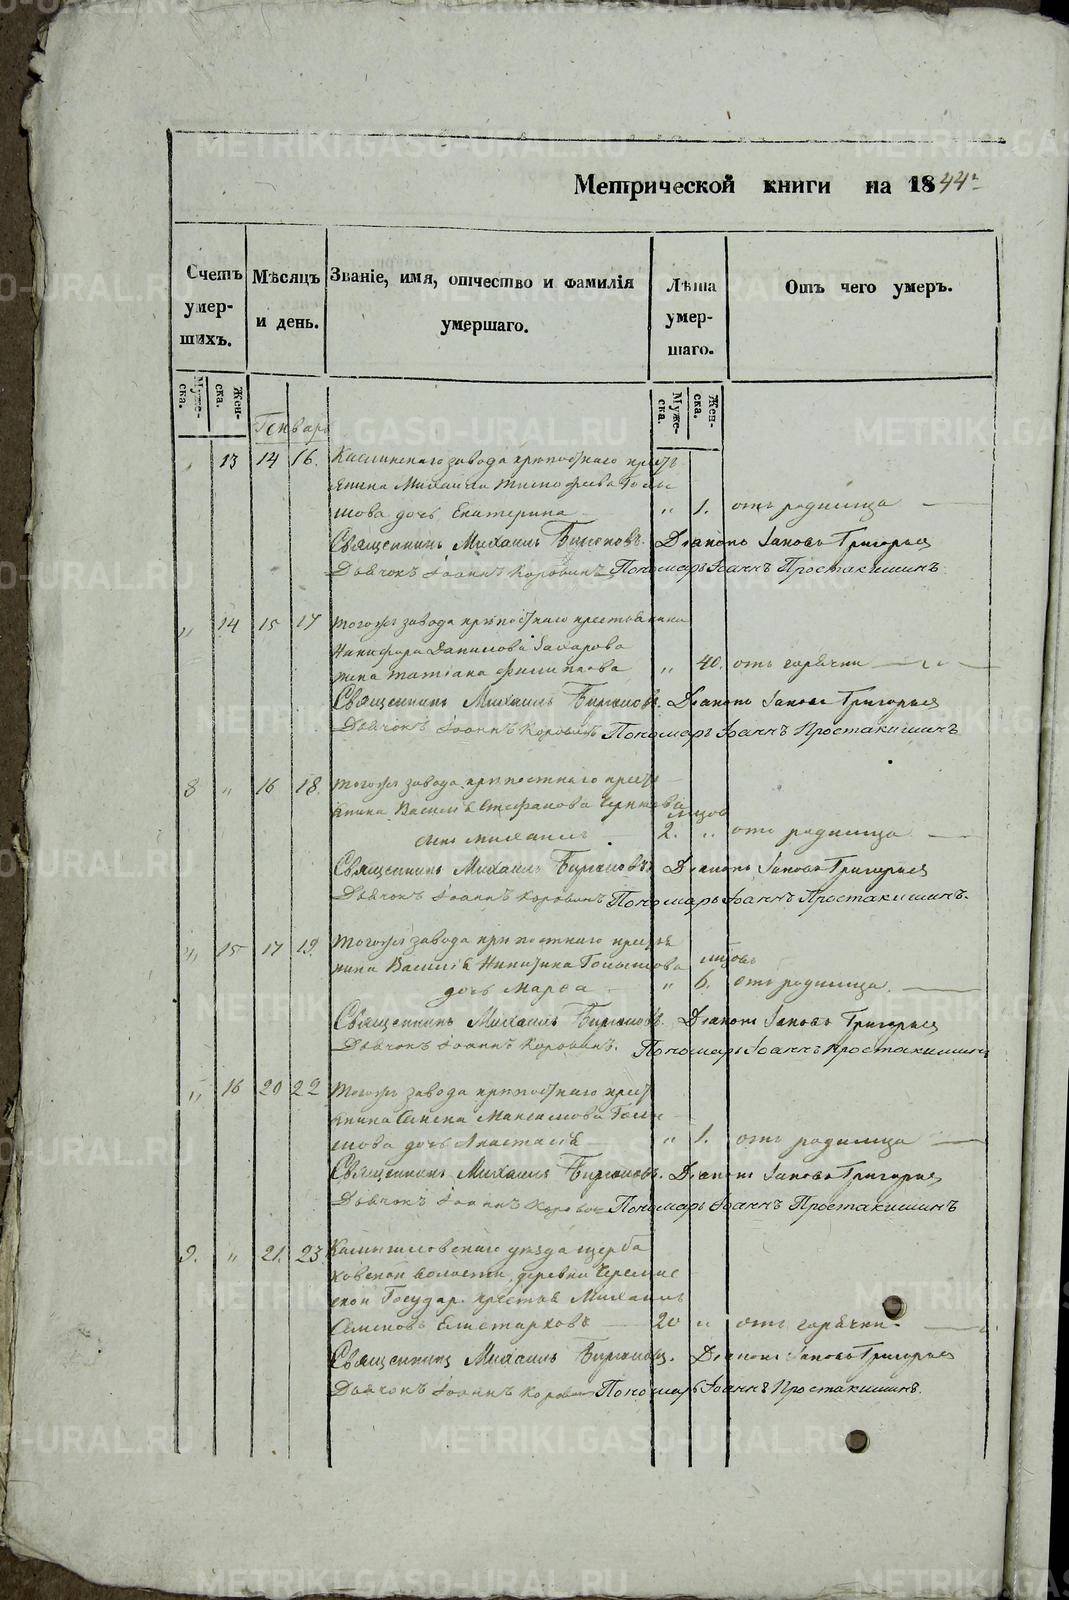 Метрической книги на 1844 г
Счетъ умер-шихъ.
Мѣсяцъ и день.
Званіе, имя, отчество и фамилія умершаго.
Лѣта умер-шаго.
Отъ чего умеръ.
Муже-ска.
Жен-ска.
Муже-ска.
Жен-ска.
Генварь
13 14 16. Каслинскаго завода крѣпостнаго крестъ
янина Михаила Тимофеева
дочь Екатерина " 1. отъ родимца
Священникъ Михаилъ Діаконъ Іаковъ Григорьевъ
Дьячокъ Іоаннъ Коровинъ Пономарь Іоаннъ Простакишинъ
" 14 15 17 тогожъ завода крѣпостнаго крестьянина
Никифора Данилова Захарова
жена Татіана Филипова " 40. отъ горячки
Священникъ Михаилъ Діаконъ Іаковъ Григорьевъ
Дьячокъ Іоаннъ Коровинъ Пономарь Іоаннъ Простакишинъ
8 " 16 18. тогожъ завода крѣпостнаго крестъ
янина Василія Стефанова
сынъ Михаилъ 2. " отъ родимца
Священникъ Михаилъ Діаконъ Іаковъ Григорьевъ
Дьячокъ Іоаннъ Коровинъ Пономарь Іоаннъ Простакишинъ.
" 15 17 19. тогожъ завода крѣпостнаго крестья
нина Василія Никитина
дочь Марѳа " 6. отъ родимца.
Священникъ Михаилъ Діаконъ Іаковъ Григорьевъ
Дьячокъ Іоаннъ Коровинъ. Пономарь Іоаннъ Простакишинъ
" 16 20 22 тогожъ завода крѣпостнаго крестъ
янина Семена Максимова
дочь Анастасія " 1. отъ родимца
Священникъ Михаилъ Діаконъ Іаковъ Григорьевъ
Дьячокъ Іоаннъ Коровинъ Пономарь Іоаннъ Простакишинъ
9. " 21. 23 Камышловскаго уѣзда Щерба
ковской волости, деревни
Государ. крестья Михаилъ
Семеновъ Елистарховъ 20 " отъ горячки.
Священникъ Михаилъ Діаконъ Іаковъ Григорьевъ
Дьячокъ Іоаннъ Коровинъ Пономарь Іоаннъ Простакишинъ.